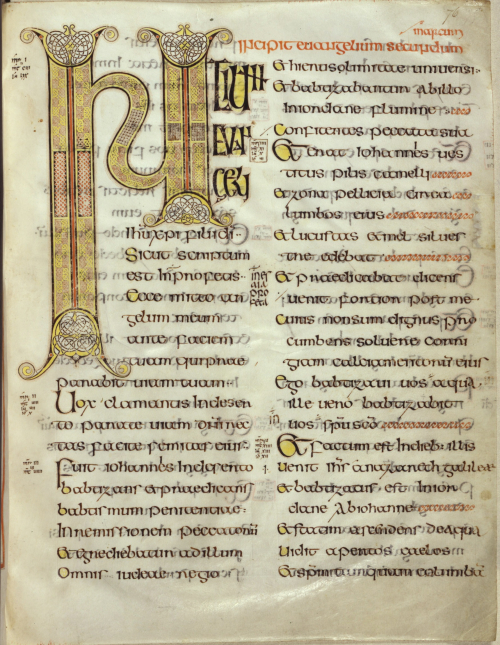 marcum
Incipit euangelium secundum
INITIUM
EVAN
GELII
ihu xpi fili di
Sicut scriptum
est In profetas
In es
aia
profe
ta
Ecce mitto an
gelum meum
ante faciem
tuam qui prae
parabit uiam tuam
Uox clamantis In deser
to parate uiam dni rec
tas facite semitas eius
Fuit iohannes In deserto
babtizans et praedicans
babtismum penitentiae
In remissionem peccatorum
Et egrediebatur ad illum
Omnis iudeae regio
Et hierusolimitae uniuersi
Et babtizabantur ab illo
In iordane flumine
Confitentes peccata sua
Et erat Iohannes ues
titus pilis camelli
Et zona pellicia circa
lumbos eius
Et lucustas et mel silues
tre edebat
Et praedicabat dicens
uenit fortior post me
Cuius non sum dignus pro
cumbens soluere corri
giam calciamentorum eius
Ego babtizaui uos aqua
ille uero babtizabit
uos spu sco
Et factum est In dieb illis
uenit ihs a nazareth galileae
Et babtizatus est In ior
dane ab iohanne
Et statim ascendens de aqua
uidit apertos caelos
Et spm tamquam columbam